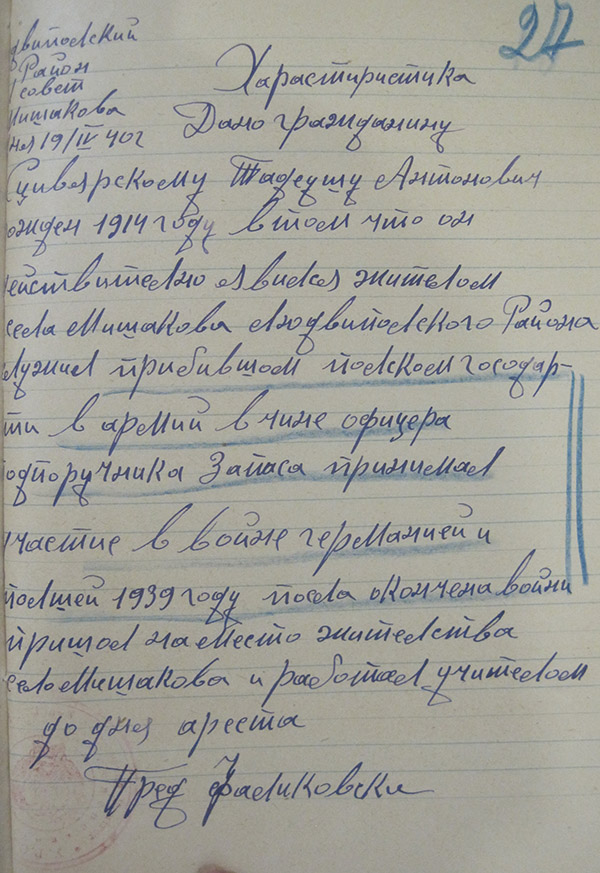 27
двипольский
Район
совет
Мишакова
19/IV 40г
Харастиристика
Дано гражданину
Сциборскому Тадеушу Антонович
ожден 1914 году в том что он
ействително явился жителом
села Мишакова Людвипольского Района
лужил прибившом полском госодар-
ти в армий в чине офицера
одпоручника Запаса принимал
частие в войне германией и
полшей 1939 году посла окончена войни
пришол на место жителства
село Мишакова и работал учителом
до дня ареста
Пред Фаликовски